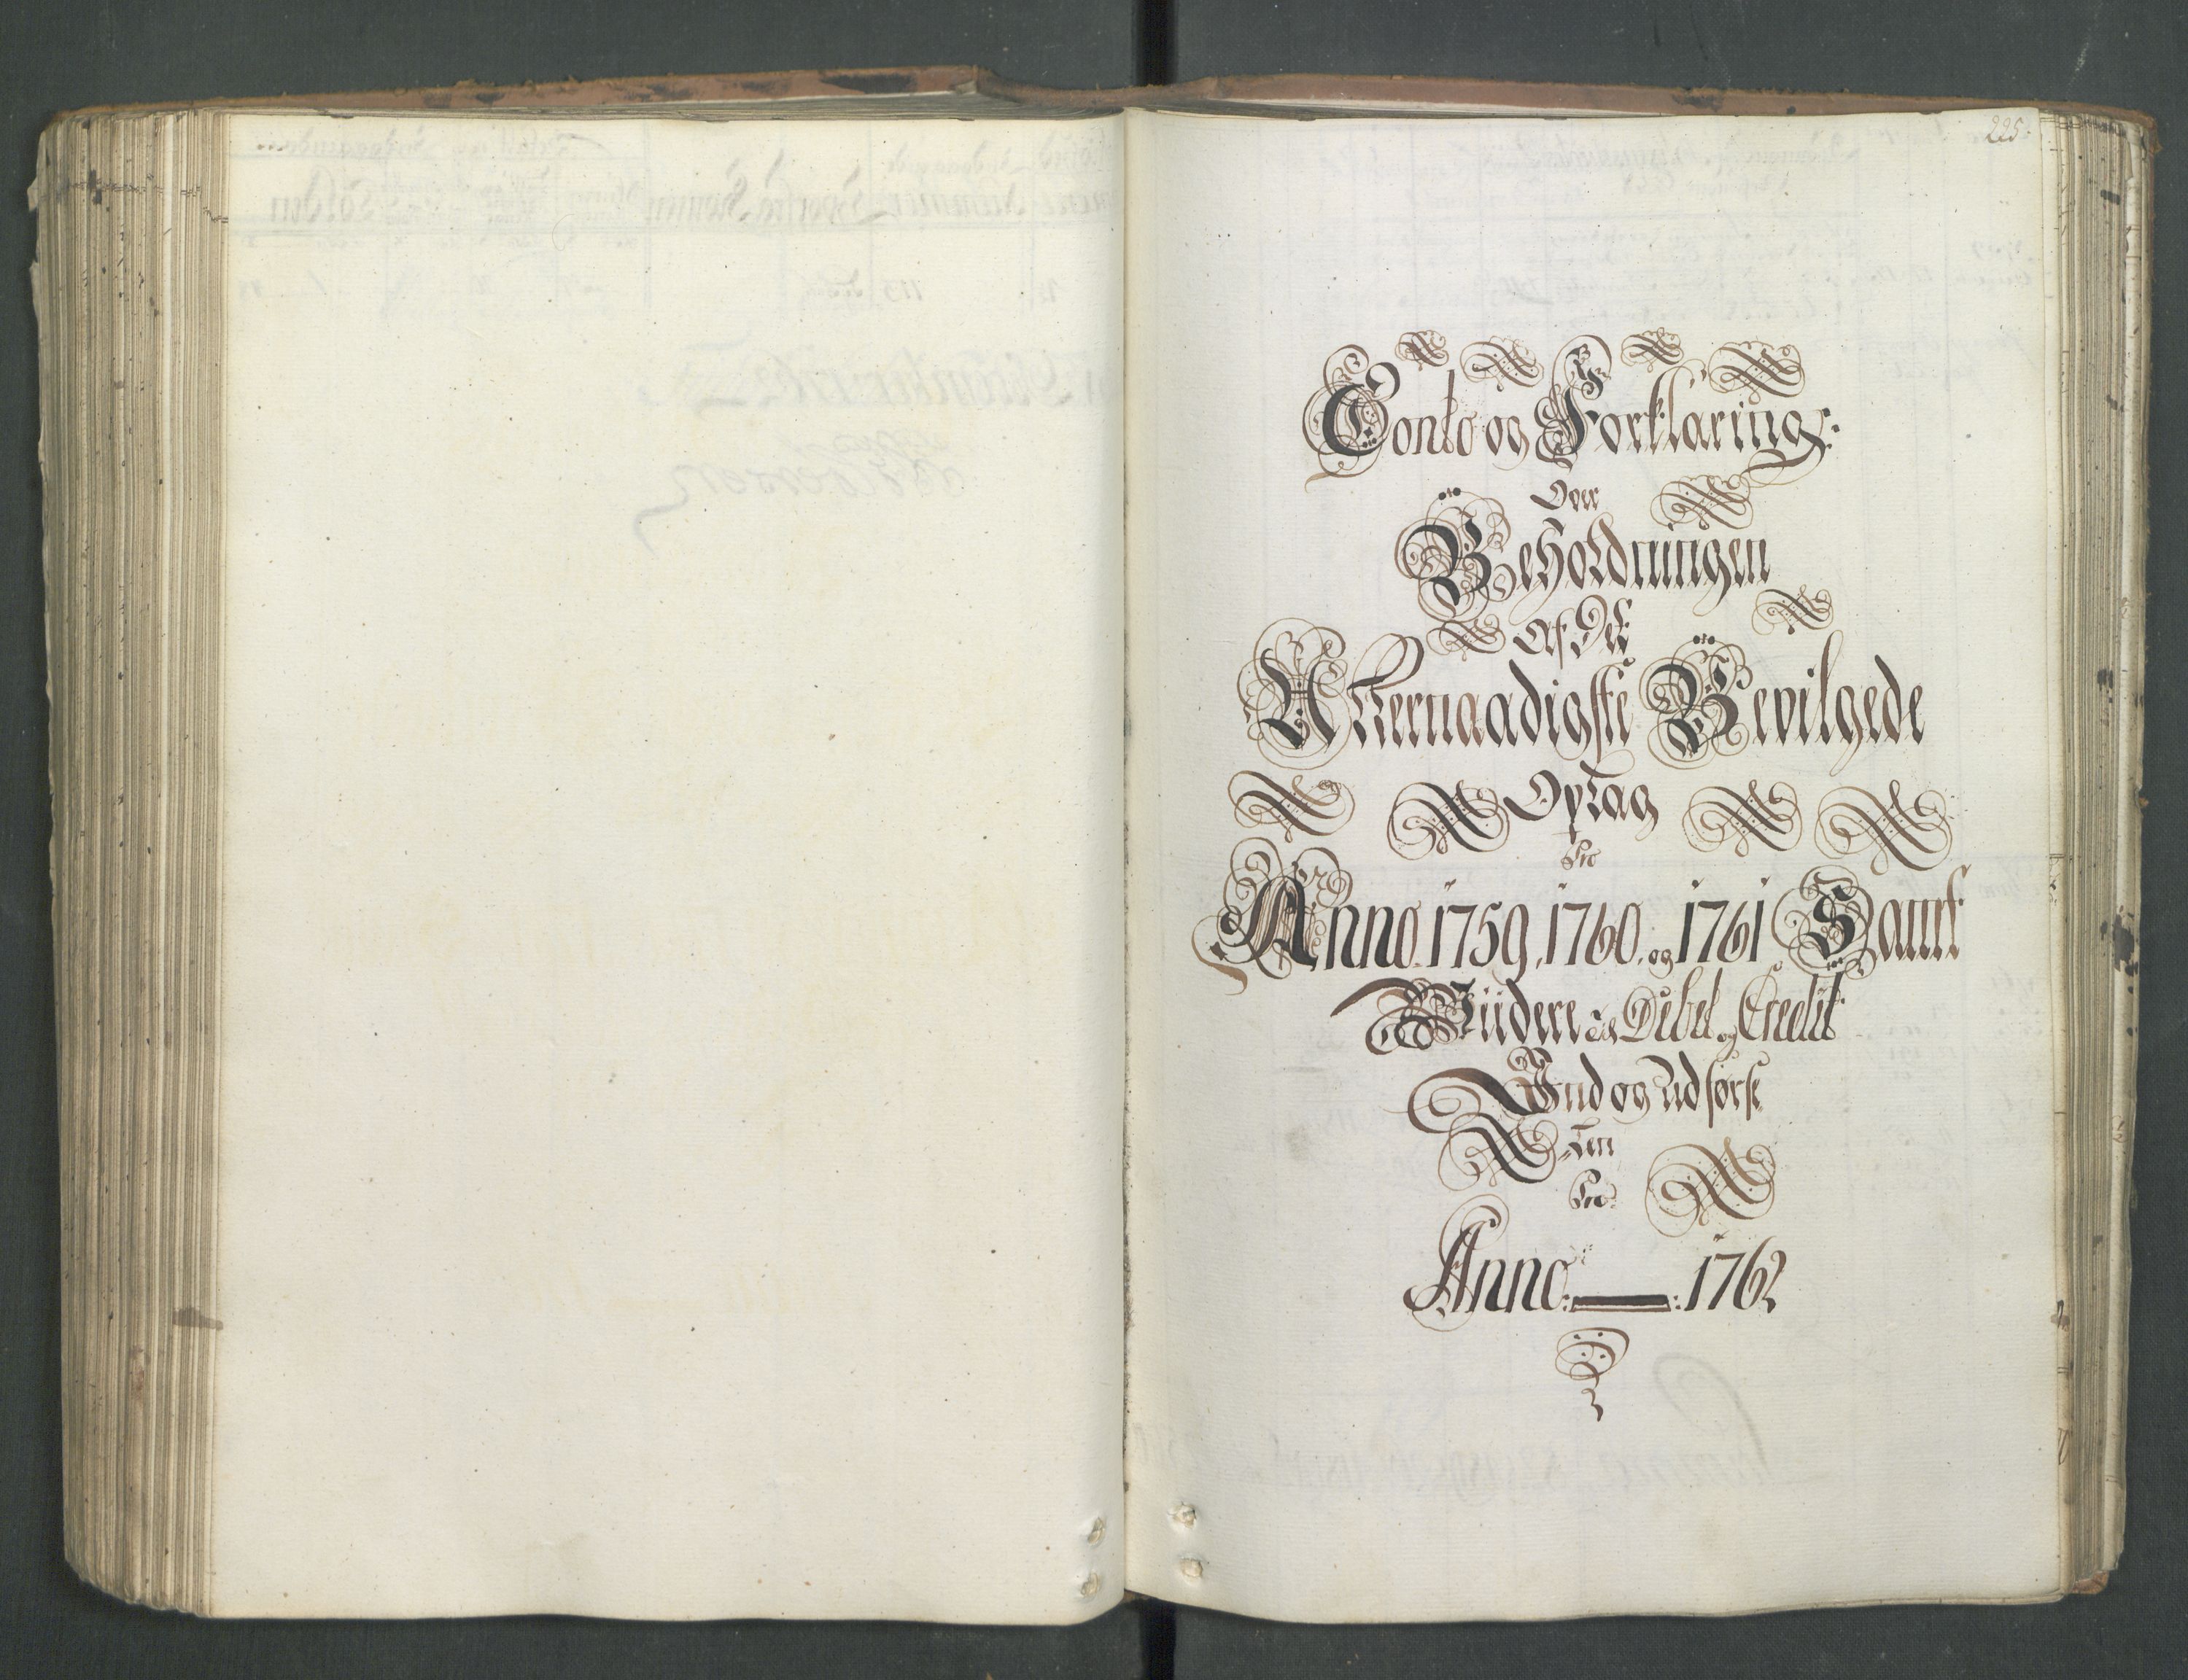 225.
Conto og Forklaring:
Over
Beholdningen
Af Det
Allernaadigste Bevilgede
Optag
Pro
Anno 1759, 1760, og 1761 Samt
Viidere Debet og Credit
Ind og udførse
Pro
Anno: 1762